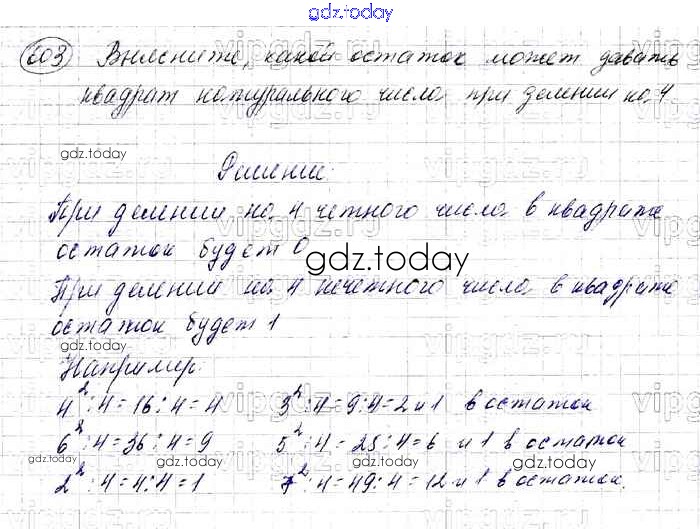 gdz.today
603 Выясните, какой остаток может давать
квадрат натурального числа при делении на 4
Решение:
При делении на 4 четного числа в квадрате
остаток будет 0
При делении на 4 нечетного числа в квадрате
остаток будет 1
Например:
4² : 4 = 16 : 4 = 4 3² : 4 = 9 : 4 = 2 и 1 в остаток
6² : 4 = 36 : 4 = 9 5² : 4 = 25 : 4 = 6 и 1 в остаток
2² : 4 = 4 : 4 = 1 7² : 4 = 49 : 4 = 12 и 1 в остаток.
gdz.today
gdz.today
gdz.today
gdz.today
gdz.today
gdz.today